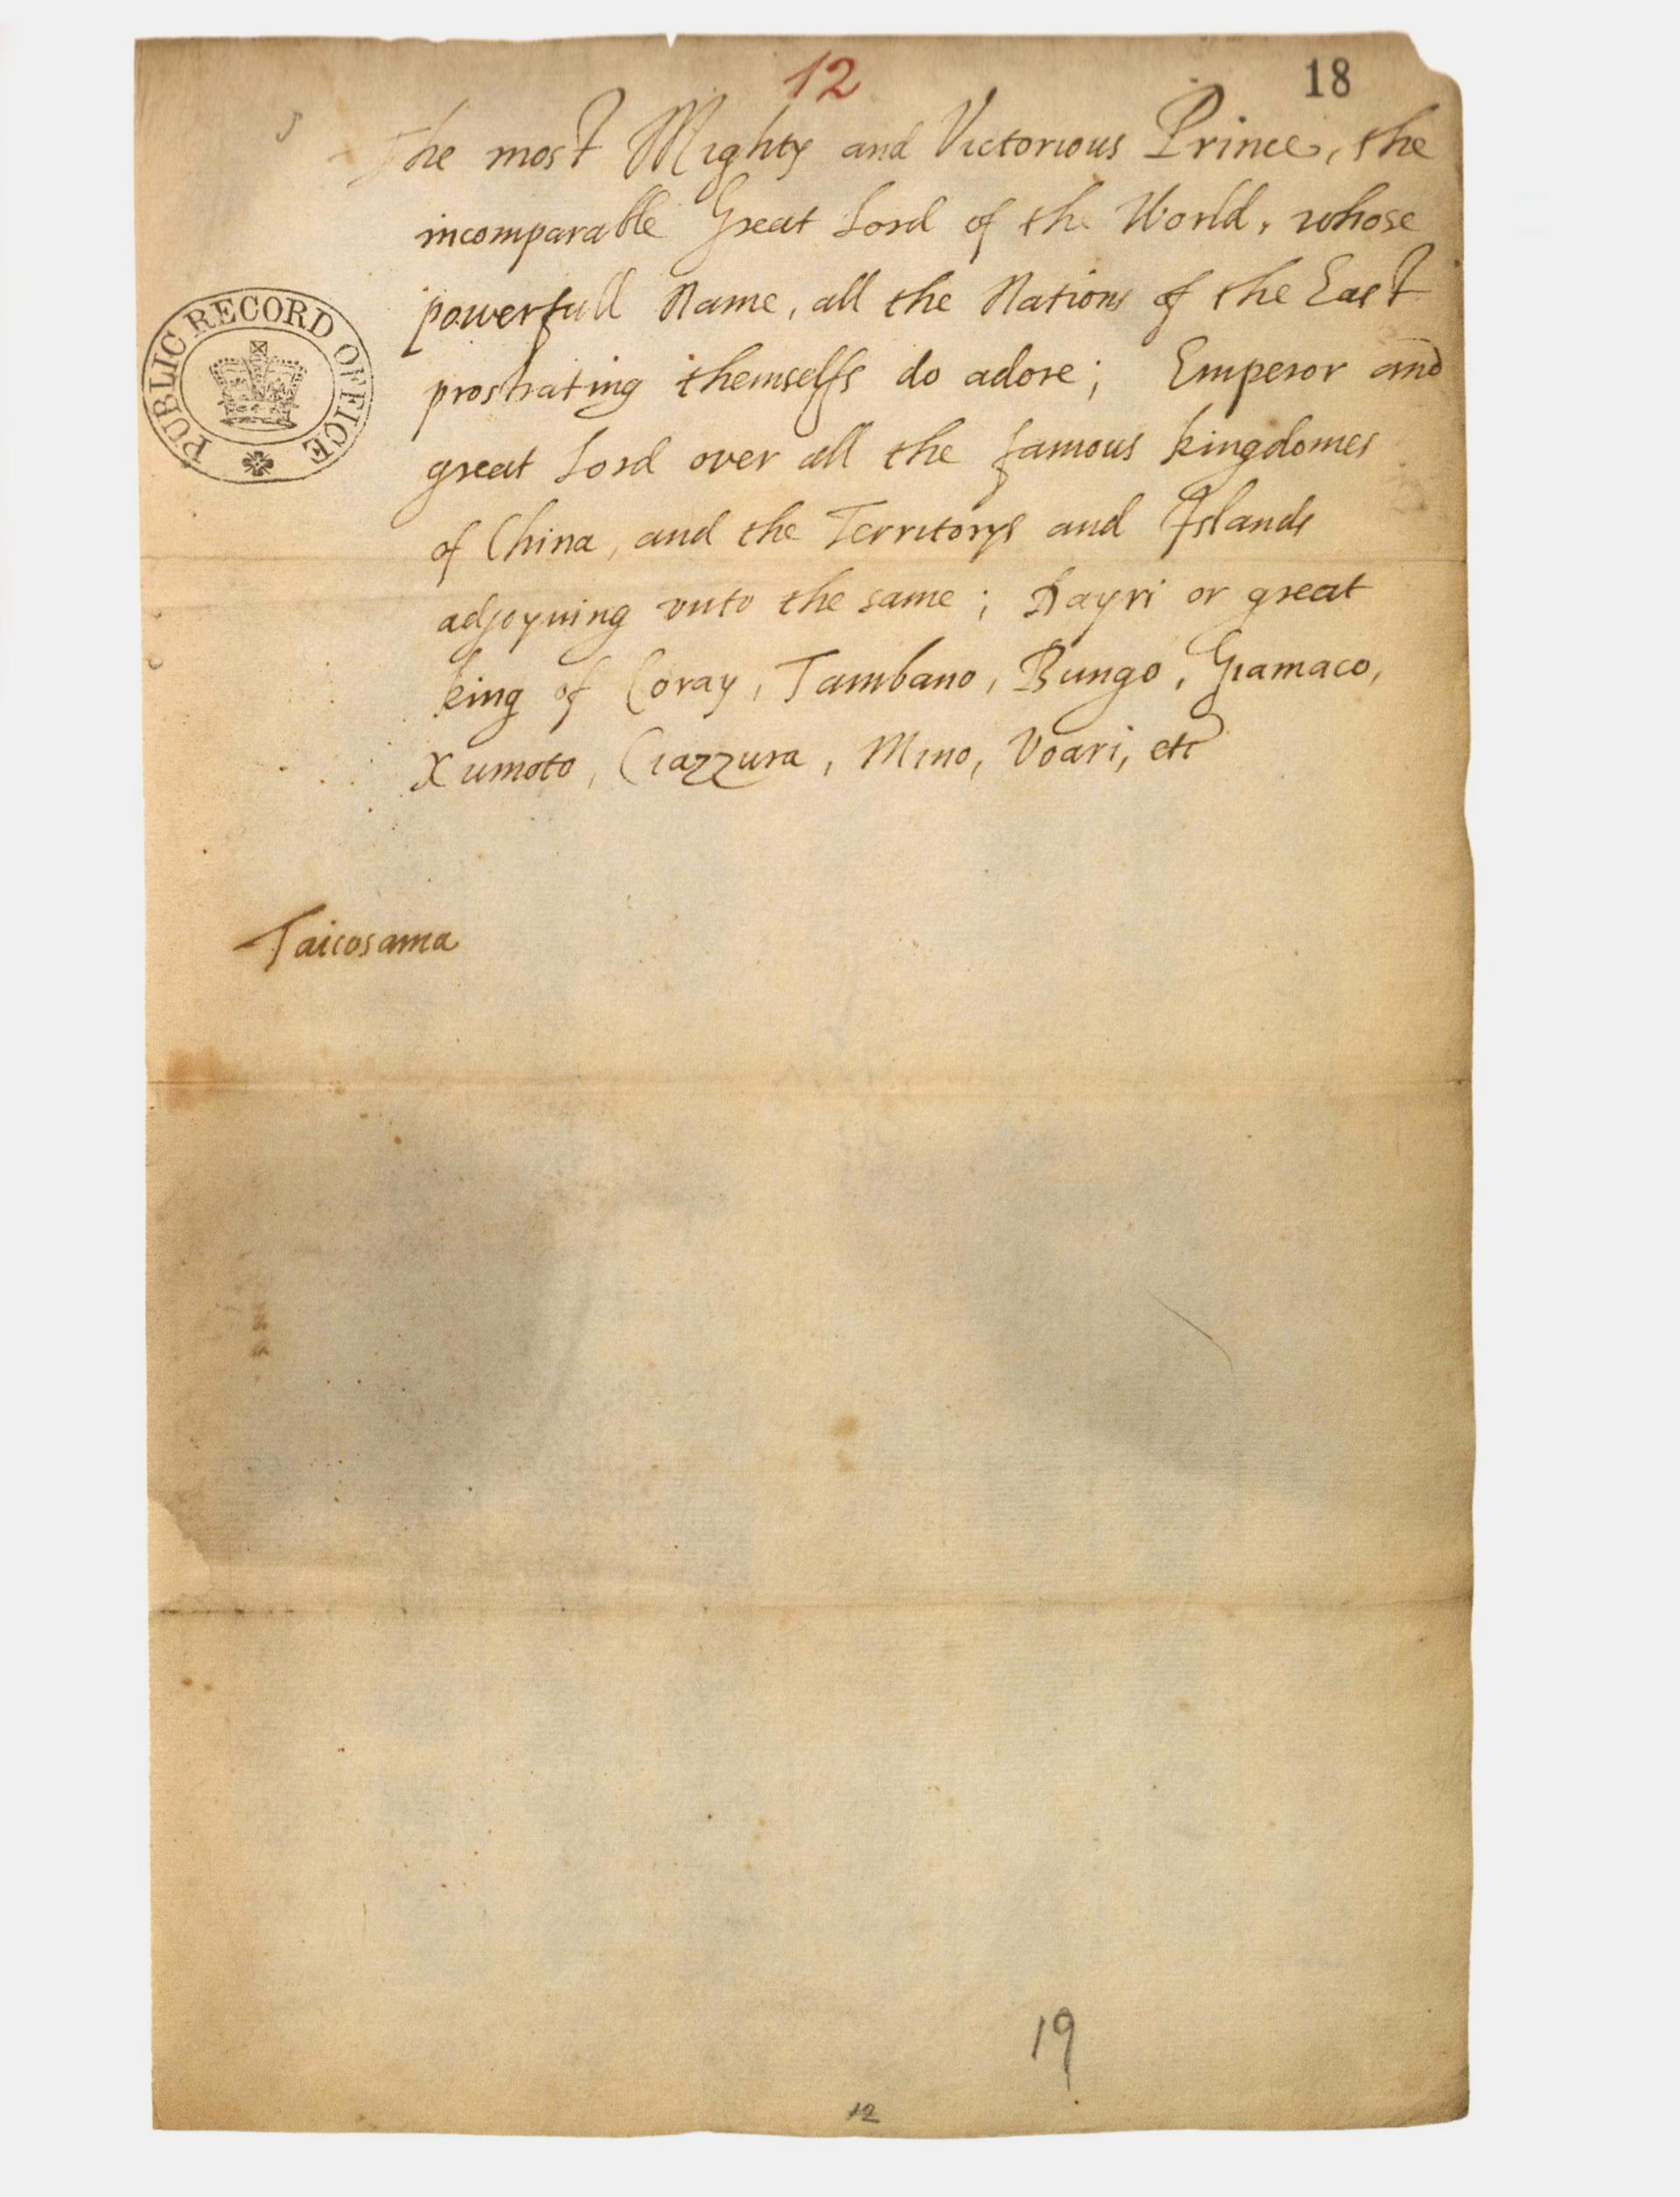 12
18
The most Mighty and Victorious Prince, the
incomparable Great Lord of the World, whose
powerfull Name, all the Nations of the East
prostrating themselfs do adore; Emperor and
great Lord over all the famous kingdomes
of China, and the Territorys and Islands
adjoyning vnto the same; Dayri or great
king of Coray, Tambano, Bungo, Giamaco,
Xumoto, Ciazzura, Mino, Voari, etc
PUBLIC RECORD OFFICE
Taicosama
19
12